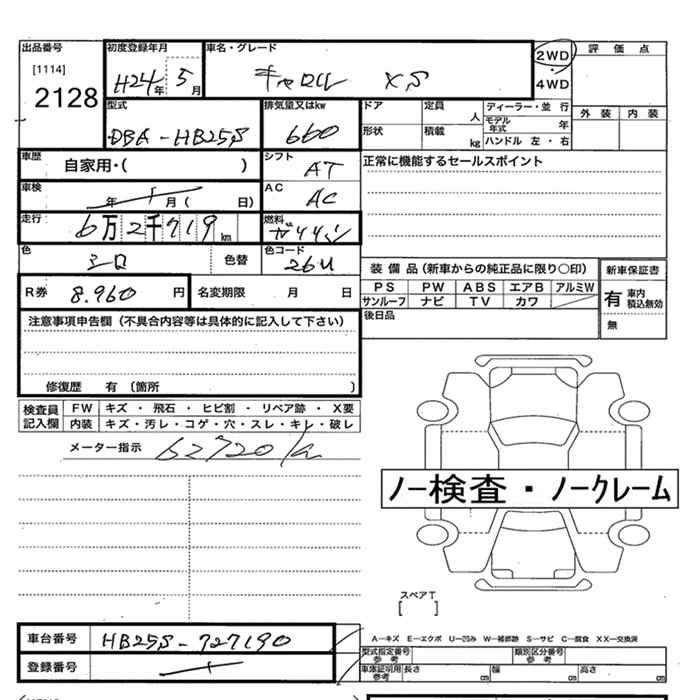 出品番号 初度登録年月 車名・グレード 2WD 評価点
[1114] H24年 5月 キャロル XS ・
2128 4WD
型式 排気量又はkw ドア 定員 人 ディーラー・並行 外装 内装
DBA-HB25S 660 形状 積載 kg モデル年式 年
ハンドル 左・右
車歴 自家用・( ) シフト AT 正常に機能するセールスポイント
車検 年 月( 日) AC AC
走行 6万2千719km 燃料 ガソリン
色 シロ 色替 色コード 26U
装備品(新車からの純正品に限り○印) 新車保証書
R券 8.960円 名変期限 月 日 PS PW ABS エアB アルミW 有 車内積込無効
サンルーフ ナビ TV カワ 無
注意事項申告欄(不具合内容等は具体的に記入して下さい) 後日品
修復歴 有(箇所 )
検査員記入欄 FW キズ・飛石・ヒビ割・リペア跡・X要
内装 キズ・汚レ・コゲ・穴・スレ・キレ・破レ
メーター指示 62720k
ノー検査・ノークレーム
スペアT
[ ]
車台番号 HB25S-727190 A-キズ E-エクボ U-凹み W-補修跡 S-サビ C-腐食 XX-交換済
登録番号 型式指定番号 参考 類別区分番号 参考
車庫証明用 参考 長さ cm 幅 cm 高さ cm